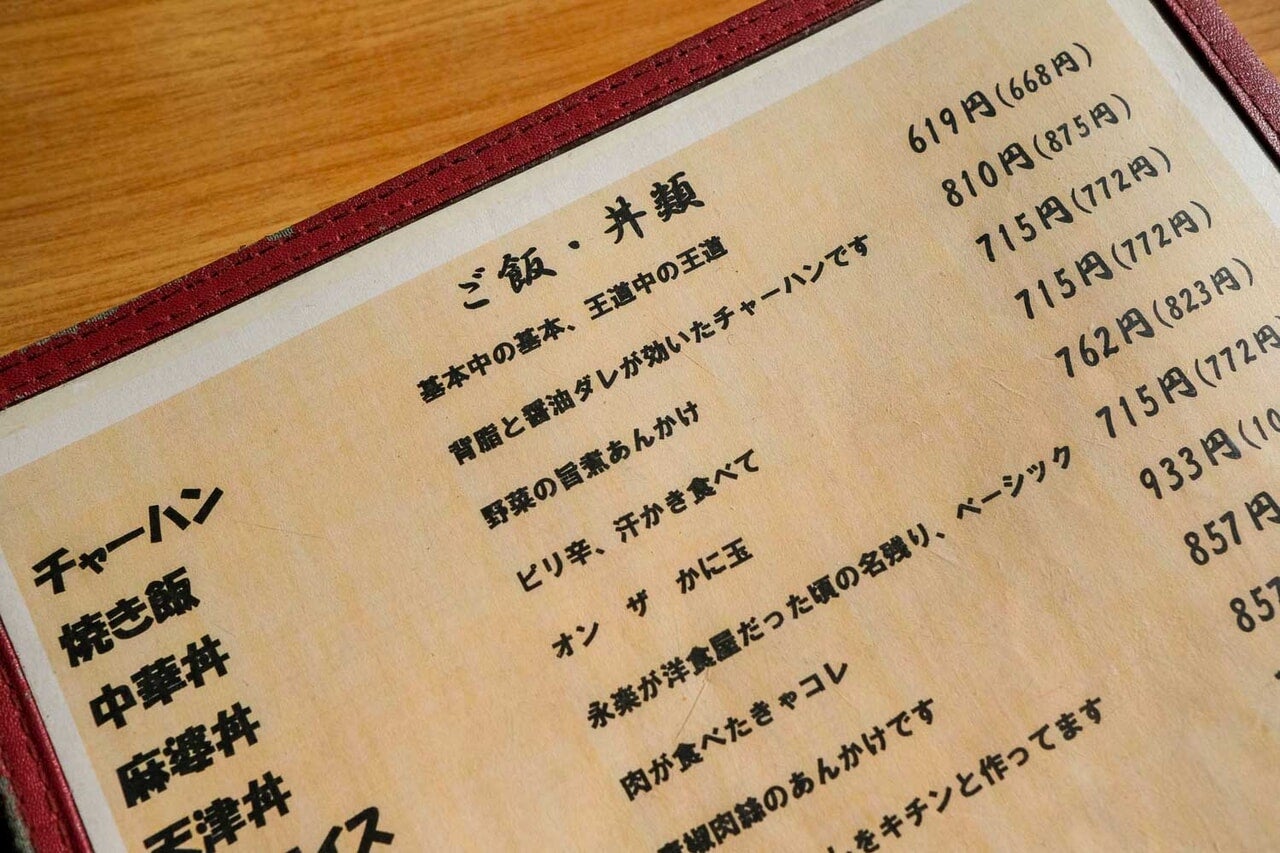 ご飯・丼類
チャーハン 基本中の基本、王道中の王道 619円(668円)
焼き飯 背脂と醤油ダレが効いたチャーハンです 810円(875円)
中華丼 野菜の旨煮あんかけ 715円(772円)
麻婆丼 ピリ辛、汗かき食べて 715円(772円)
天津丼 オン ザ かに玉 762円(823円)
イス 永楽が洋食屋だった頃の名残り、ベーシック 715円(772円
肉が食べたきゃコレ 933円(10
椒肉絲のあんかけです 857円
をキチンと作ってます 857